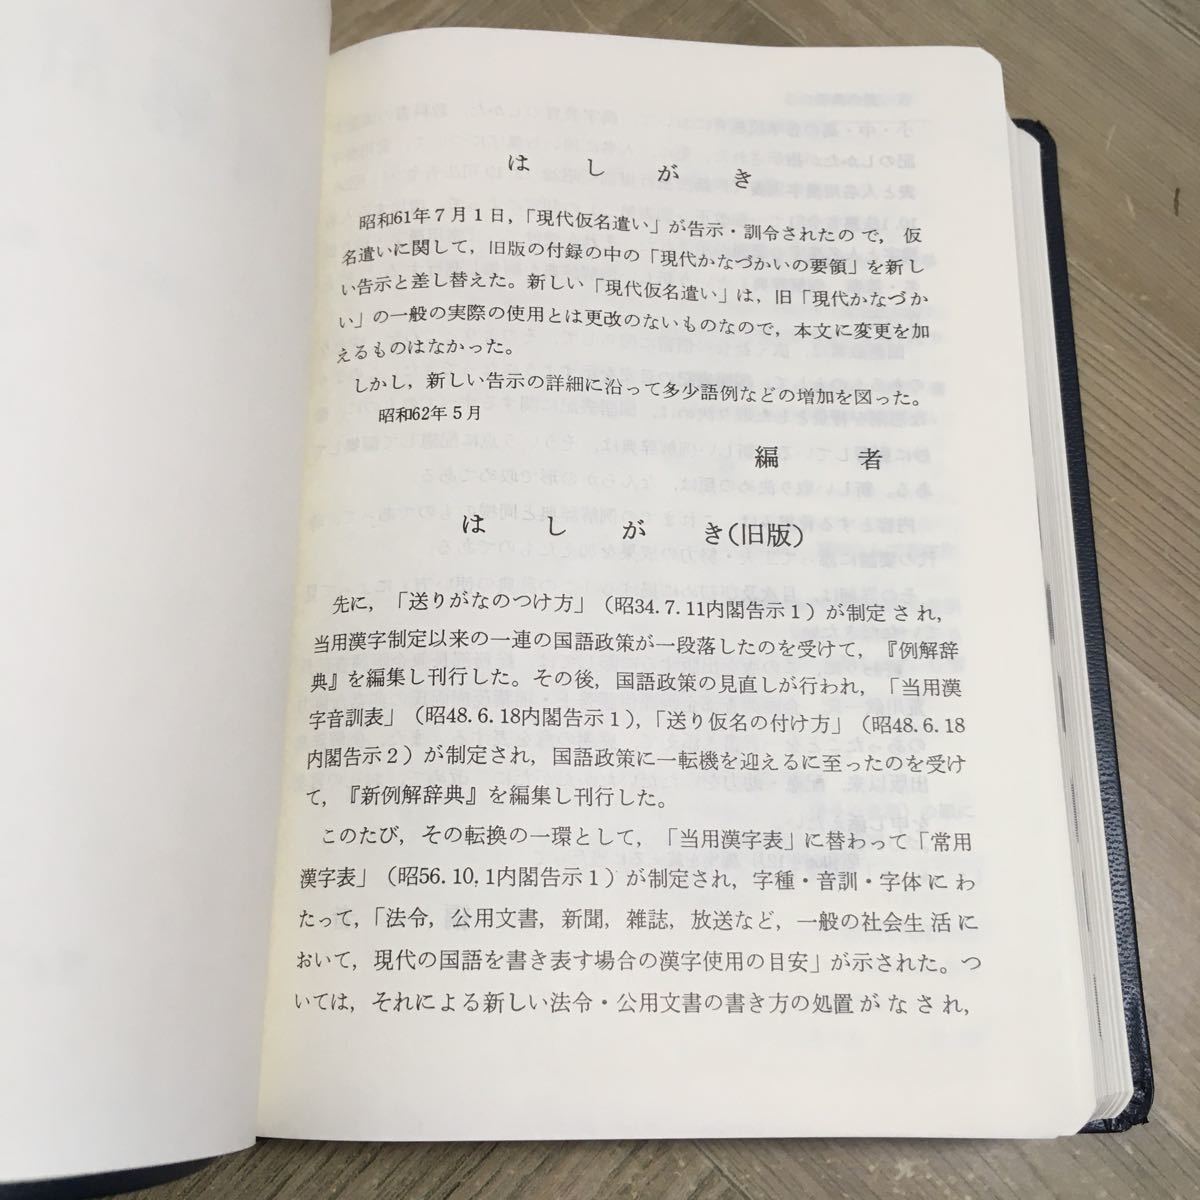 はしがき
昭和61年7月1日，「現代仮名遣い」が告示・訓令されたので，仮
名遣いに関して，旧版の付録の中の「現代かなづかいの要領」を新し
い告示と差し替えた。新しい「現代仮名遣い」は，旧「現代かなづか
い」の一般の実際の使用とは更改のないものなので，本文に変更を加
えるものはなかった。
しかし，新しい告示の詳細に沿って多少語例などの増加を図った。
昭和62年5月
編者
はしがき(旧版)
先に，「送りがなのつけ方」（昭34.7.11内閣告示1）が制定され，
当用漢字制定以来の一連の国語政策が一段落したのを受けて，『例解辞
典』を編集し刊行した。その後，国語政策の見直しが行われ，「当用漢
字音訓表」（昭48.6.18内閣告示1），「送り仮名の付け方」（昭48.6.18
内閣告示2）が制定され，国語政策に一転機を迎えるに至ったのを受け
て，『新例解辞典』を編集し刊行した。
このたび，その転換の一環として，「当用漢字表」に替わって「常用
漢字表」（昭56.10.1内閣告示1）が制定され，字種・音訓・字体にわ
たって，「法令，公用文書，新聞，雑誌，放送など，一般の社会生活に
おいて，現代の国語を書き表す場合の漢字使用の目安」が示された。つ
いては，それによる新しい法令・公用文書の書き方の処置がなされ，